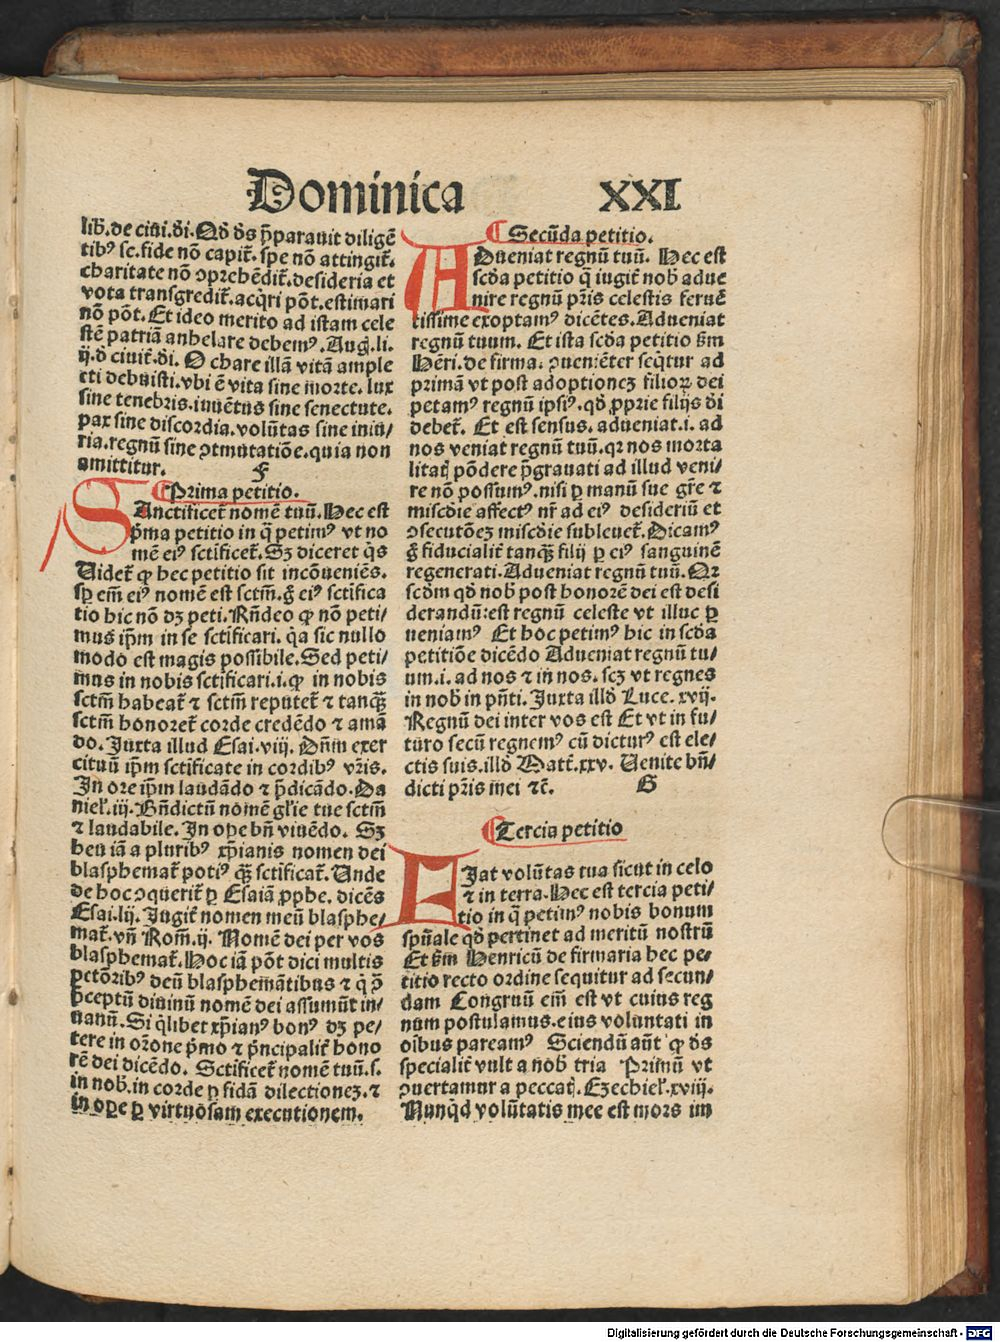 Dominica XXI
lib̄. de ciui. d̄i. Qd̕ d̄s p̄parauit diligē
tibꝰ sc. fide nō capit̄. spe nō attingit̄.
charitate nō ꝯprehēdit̄. desideria et
vota transgredit̄. acq̇ri pōt. estimari
nō pōt. Et ideo merito ad istam cele
stē patriā anhelare debemꝰ. Aug̕. li.
ij. d̕ ciuit̄. d̄i. O chare illā vitā ample
cti debuisti. vbi ē vita sine morte. lux
sine tenebris. iuuētus sine senectute.
pax sine discordia. volūtas sine iniu/
ria. regnū sine ꝯtmutatiōe. quia non
amittitur. F
¶ Prima petitio.
SAnctificet̄ nomē tuū. Hec est
p̄ma petitio in q̄ petimꝰ vt no
mē eiꝰ sctificet̄. Sꝫ diceret q̇s
Uidet̄ ꝙ hec petitio sit incōueniēs.
sꝑ em̄ eiꝰ nomē est sctm̄. g̕ eiꝰ sctifica
tio hic nō dꝫ peti. Rn̄deo ꝙ nō peti/
mus ip̄m in se sctificari. q̇a sic nullo
modo est magis possibile. Sed peti/
mus in nobis sctificari. i. ꝙ in nobis
sctm̄ habeat̄ ⁊ sctm̄ reputet̄ ⁊ tanqꝫ̄
sctm̄ honoret̄ corde credēdo ⁊ amā
do. Juxta illud Esai. viij. Dn̄m exer
cituū ip̄m sctificate in cordibꝰ vr̄is.
In ore ip̄m laudādo ⁊ p̄dicādo. Da
niel̕. iij. Bn̄dictū nomē gl̄ie tue sctm̄
⁊ laudabile. In oꝑe bn̄ viuēdo. Sꝫ
heu iā a pluribꝰ xp̄ianis nomen dei
blasphemat̄ potiꝰ qꝫ̄ sctificat̄. Unde
de hoc ꝯquerit̄ ꝑ Esaiā ꝓphe. dicēs
Esai. lij. Jugit̄ nomen meū blasphe/
mat̄. vn̄ Rom̄. ij. Nomē dei per vos
blasphemat̄. Hoc iā pōt dici multis
pctōribꝰ deū blasphemātibus ⁊ q̇ ꝯ̄
p̄ceptū diuinū nomē dei assumūt in/
uanū. Si q̇libet xp̄ianꝰ bonꝰ dꝫ pe/
tere in orōne p̄mo ⁊ p̄ncipalit̄ hono
rē dei dicēdo. Sctificet̄ nomē tuū. s.
in nob̄. in corde ꝑ fidā dilectionez. ⁊
in oꝑe ꝑ virtuosam executionem.
¶ Secūda petitio.
ADueniat regnū tuū. Hec est
scd̄a petitio q̄ iugit̄ nob̄ adue
nire regnū pr̄is celestis feruē
tissime exoptamꝰ dicētes. Adueniat
regnū tuum. Et ista scd̄a petitio ẜm
Hēri. de firma. ꝯueniēter seq̇tur ad
primā vt post adoptionez filioꝝ dei
petamꝰ regnū ipsiꝰ. qd̕ ꝓprie filijs d̄i
debet̄. Et est sensus. adueniat. i. ad
nos veniat regnū tuū. qr nos morta
litatꝭ pōdere p̄grauati ad illud veni/
re nō possumꝰ. nisi ꝑ manū sue gr̄e ⁊
misc̄die affectꝰ nr̄ ad eiꝰ desideriū et
ꝯsecutōez misc̄die subleuet̄. Dicamꝰ
g̕ fiducialit̄ tanqꝫ̄ filij ꝑ eiꝰ sanguinē
regenerati. Adueniat regnū tuū. Qr
scd̄m qd̕ nob̄ post honorē dei est desi
derandū: est regnū celeste vt illuc ꝑ
ueniamꝰ Et hoc petimꝰ hic in scd̄a
petitiōe dicēdo Adueniat regnū tu/
um. i. ad nos ⁊ in nos. scꝫ vt regnes
in nob̄ in pn̄ti. Juxta illd̕ Luce. xvij.
Regnū dei inter vos est Et vt in fu/
turo secū regnemꝰ cū dicturꝰ est ele/
ctis suis. illd̕ Matt̄. xxv. Uenite bn̄/
dicti pr̄is mei ⁊c̄. G
¶ Tercia petitio
FIat volūtas tua sicut in celo
⁊ in terra. Hec est tercia peti/
tio in q̄ petimꝰ nobis bonum
spūale qd̕ pertinet ad meritū nostrū
Et ẜm Henricū de firmaria hec pe/
titio recto ordine sequitur ad secun/
dam Congruū em̄ est vt cuius reg
num postulamus. eius voluntati in
oībus pareamꝰ Sciendū aūt ꝙ d̄s
specialit̄ vult a nob̄ tria Primū vt
ꝯuertamur a peccatꝭ. Ezechiel̕. xviij.
Nunq̇d volūtatis mee est mors im
Digitalisierung gefördert durch die Deutsche Forschungsgemeinschaft - DFG